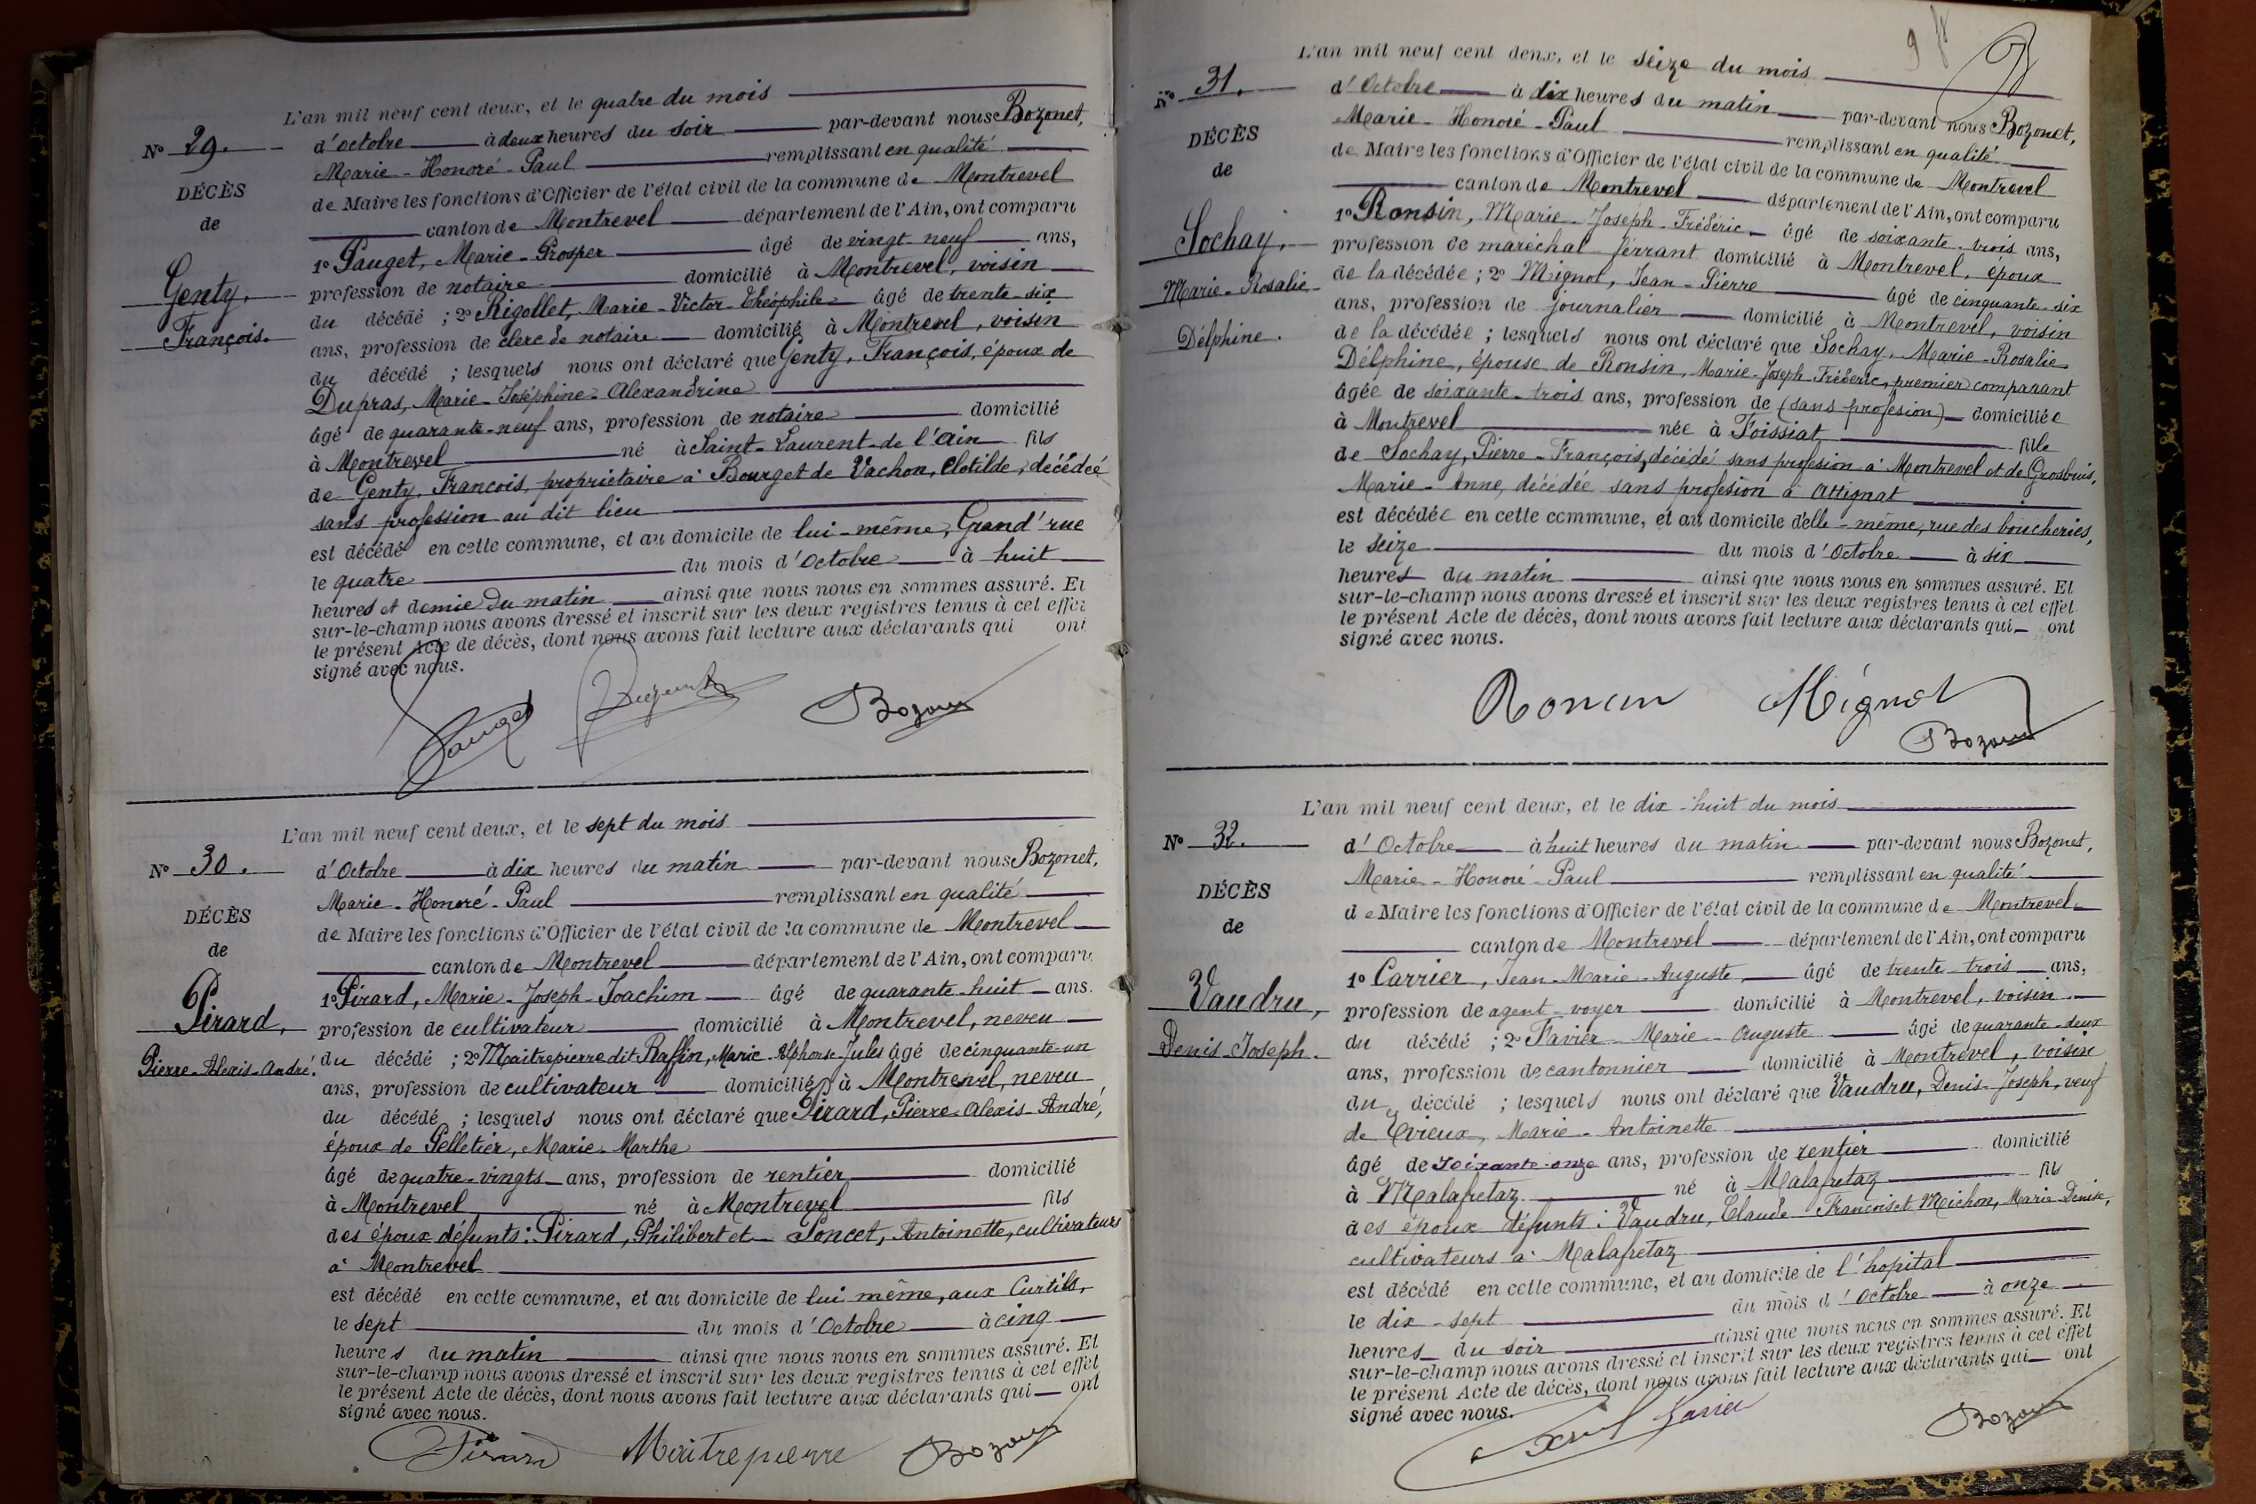 L'an mil neuf cent deux, et le quatre du mois
No 29.
d'octobre à deux heures du soir par-devant nous Bozonet,
Marie-Honoré-Paul remplissant en qualité
DÉCÈS
de Maire les fonctions d'Officier de l'état civil de la commune de Montrevel
de
canton de Montrevel département de l'Ain, ont comparu
1o Pauget, Marie-Prosper âgé de vingt neuf ans,
Genty,
profession de notaire domicilié à Montrevel, voisin
François.
du décédé ; 2o Rigollet, Marie-Victor-Théophile âgé de trente-six
ans, profession de clerc de notaire domicilié à Montrevel, voisin
du décédé ; lesquels nous ont déclaré que Genty, François, époux de
Dupras, Marie-Joséphine-Alexandrine
âgé de quarante-neuf ans, profession de notaire domicilié
à Montrevel né à Saint-Laurent-de l'Ain fils
de Genty, François, propriétaire à Bourg et de Vachon, Clotilde, décédée
sans profession au dit lieu
est décédé en cette commune, et au domicile de lui-même, Grand'rue
le quatre du mois d'Octobre à huit
heures et demie du matin ainsi que nous nous en sommes assuré. Et
sur-le-champ nous avons dressé et inscrit sur les deux registres tenus à cet effet
le présent Acte de décès, dont nous avons fait lecture aux déclarants qui ont
signé avec nous.
Pauget Bozonet
L'an mil neuf cent deux, et le sept du mois
No 30.
d'Octobre à dix heures du matin par-devant nous Bozonet,
Marie-Honoré-Paul remplissant en qualité
DÉCÈS
de Maire les fonctions d'Officier de l'état civil de la commune de Montrevel
de
canton de Montrevel département de l'Ain, ont comparu
1o Pirard, Marie-Joseph-Joachim âgé de quarante-huit ans.
Pirard,
profession de cultivateur domicilié à Montrevel, neveu
Pierre-Alexis-André.
du décédé ; 2o Maitrepierre dit Raffin, Marie-Alphonse-Jules âgé de cinquante-un
ans, profession de cultivateur domicilié à Montrevel, neveu
du décédé ; lesquels nous ont déclaré que Pirard, Pierre-Alexis-André,
époux de Pelletier, Marie-Marthe
âgé de quatre-vingts ans, profession de rentier domicilié
à Montrevel né à Montrevel fils
des époux défunts : Pirard, Philibert et Poncet, Antoinette, cultivateurs
à Montrevel
est décédé en cette commune, et au domicile de lui même, aux Curtils,
le sept du mois d'Octobre à cinq
heures du matin ainsi que nous nous en sommes assuré. Et
sur-le-champ nous avons dressé et inscrit sur les deux registres tenus à cet effet
le présent Acte de décès, dont nous avons fait lecture aux déclarants qui ont
signé avec nous.
Pirard Maitrepierre Bozonet
L'an mil neuf cent deux, et le seize du mois
No 31.
d'Octobre à dix heures du matin par-devant nous Bozonet,
Marie-Honoré-Paul remplissant en qualité
DÉCÈS
de Maire les fonctions d'Officier de l'état civil de la commune de Montrevel
de
canton de Montrevel département de l'Ain, ont comparu
1o Ronsin, Marie-Joseph-Fréderic âgé de soixante-trois ans,
Sochay,
profession de maréchal-ferrant domicilié à Montrevel, époux
Marie-Rosalie
de la décédée ; 2o Mignot, Jean-Pierre âgé de cinquante-six
ans, profession de journalier domicilié à Montrevel, voisin
Délphine.
de la décédée ; lesquels nous ont déclaré que Sochay, Marie-Rosalie
Délphine, épouse de Ronsin, Marie-Joseph-Fréderic, premier comparant
âgée de soixante-trois ans, profession de (sans profesion) domiciliée
à Montrevel née à Foissiat fille
de Sochay, Pierre-François, décédé sans profesion à Montrevel et de Grosbuis,
Marie-Anne, décédée sans profesion à Attignat
est décédée en cette commune, et au domicile d'elle-même, rue des boucheries,
le seize du mois d'Octobre à six
heures du matin ainsi que nous nous en sommes assuré. Et
sur-le-champ nous avons dressé et inscrit sur les deux registres tenus à cet effet
le présent Acte de décès, dont nous avons fait lecture aux déclarants qui ont
signé avec nous.
Ronsin Mignot
Bozonet
L'an mil neuf cent deux, et le dix-huit du mois
No 32.
d'Octobre à huit heures du matin par-devant nous Bozonet,
Marie-Honoré-Paul remplissant en qualité
DÉCÈS
de Maire les fonctions d'Officier de l'état civil de la commune de Montrevel
de
canton de Montrevel département de l'Ain, ont comparu
1o Carrier, Jean-Marie-Auguste, âgé de trente-trois ans,
Vaudru,
profession de agent-voyer domicilié à Montrevel, voisin
Denis Joseph
du décédé ; 2o Favier Marie-Auguste âgé de quarante-deux
ans, profession de cantonnier domicilié à Montrevel, voisin
du décédé ; lesquels nous ont déclaré que Vaudru, Denis-Joseph, veuf
de Evieux, Marie-Antoinette
âgé de soixante-onze ans, profession de rentier domicilié
à Malafretaz né à Malafretaz fils
des époux défunts : Vaudru, Claude-François et Michon, Marie-Denise,
cultivateurs à Malafretaz
est décédé en cette commune, et au domicile de l'hopital
le dix-sept du mois d'Octobre à onze
heures du soir ainsi que nous nous en sommes assuré. Et
sur-le-champ nous avons dressé et inscrit sur les deux registres tenus à cet effet
le présent Acte de décès, dont nous avons fait lecture aux déclarants qui ont
signé avec nous.
Favier Bozonet